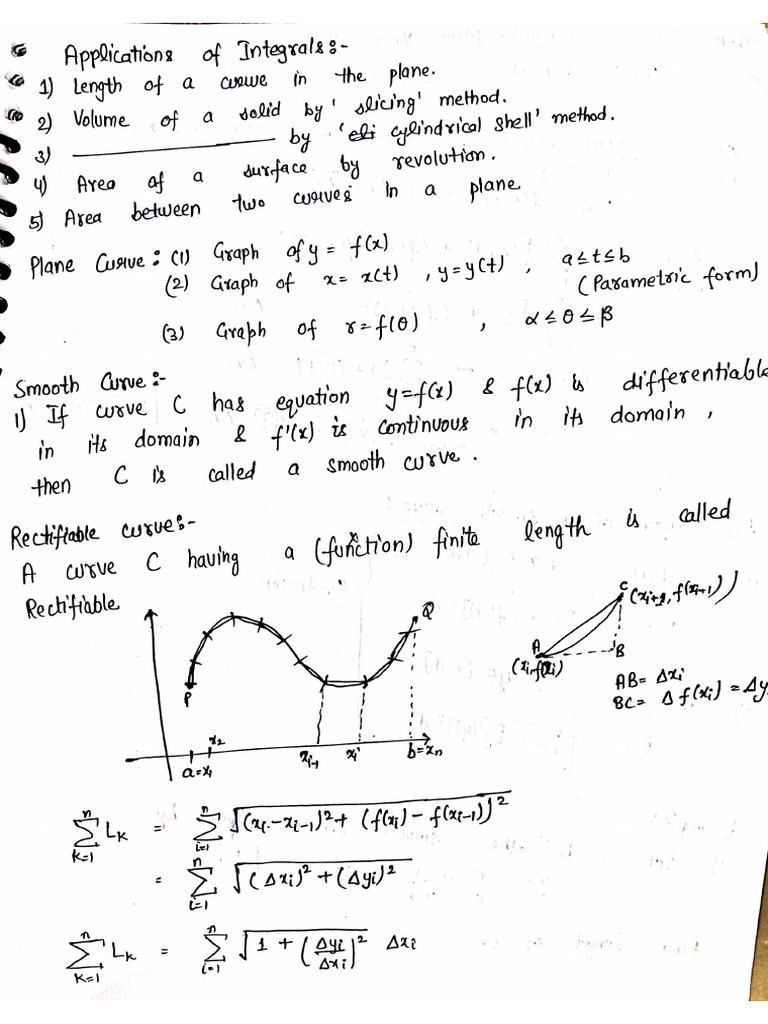 Applications of Integrals:-
1) Length of a curve in the plane.
2) Volume of a solid by 'slicing' method.
3) ―――――― by 'eli cylindrical shell' method.
4) Area of a surface by revolution.
5) Area between two curves in a plane
Plane Curve: (1) Graph of y = f(x)
(2) Graph of x = x(t) , y = y(t) , a ≤ t ≤ b
(Parametric form)
(3) Graph of r = f(θ) , α ≤ θ ≤ β
Smooth Curve:-
1) If curve C has equation y = f(x) & f(x) is differentiable
in its domain & f'(x) is continuous in its domain,
then C is called a smooth curve.
Rectifiable curve:-
A curve C having a (function) finite length is called
Rectifiable
P
Q
a = x₁
x₂
xᵢ₋₁
xᵢ
b = xₙ
A
B
C (xᵢ₊₁, f(xᵢ₊₁))
AB = Δxᵢ
BC = Δf(xᵢ) = Δy
∑ₖ₌₁ⁿ Lₖ = ∑ᵢ₌₁ⁿ √((xᵢ - xᵢ₋₁)² + (f(xᵢ) - f(xᵢ₋₁))²)
= ∑ᵢ₌₁ⁿ √((Δxᵢ)² + (Δyᵢ)²)
∑ₖ₌₁ⁿ Lₖ = ∑ᵢ₌₁ⁿ √(1 + (Δyᵢ/Δxᵢ)²) Δxᵢ